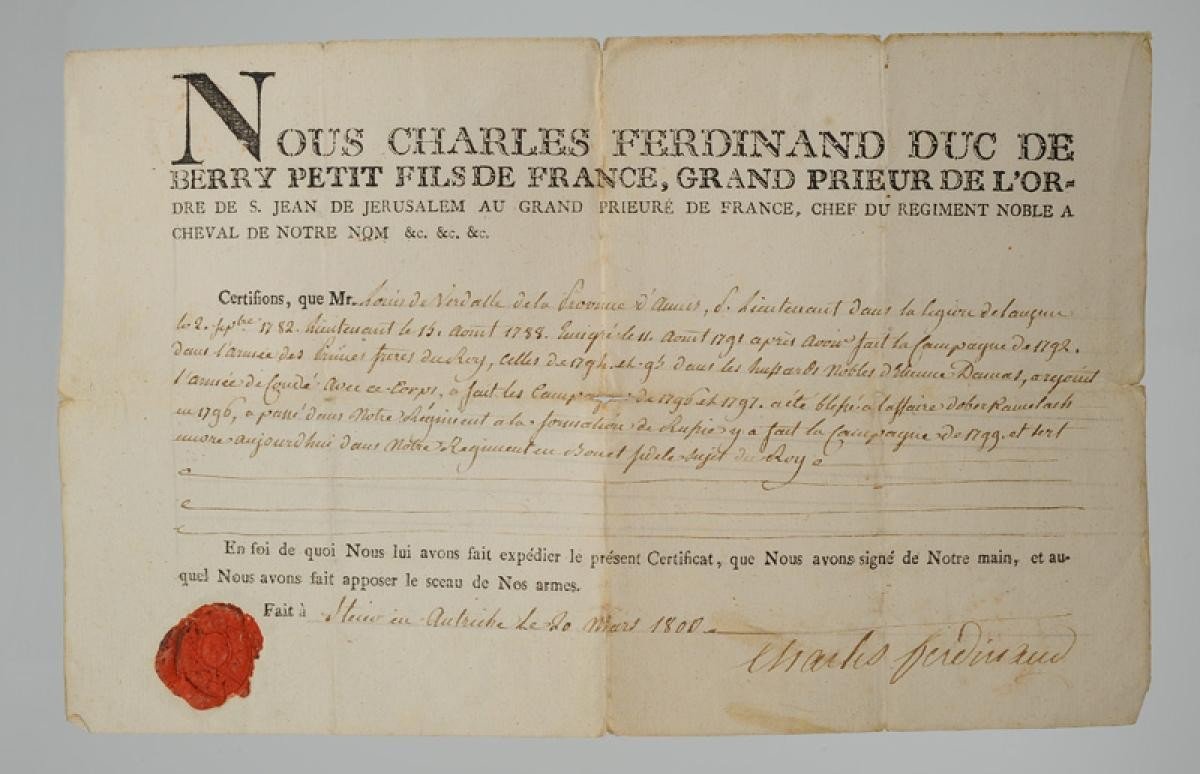 NOUS CHARLES FERDINAND DUC DE
BERRY PETIT FILS DE FRANCE, GRAND PRIEUR DE L'OR-
DRE DE S. JEAN DE JERUSALEM AU GRAND PRIEURÉ DE FRANCE, CHEF DU REGIMENT NOBLE A
CHEVAL DE NOTRE NOM &c. &c. &c.
Certifions, que Mr. Louis de Verdalle de la Province d'Aunis, S. Lieutenant dans la legion de
le 2. 7bre 1782. Lieutenant le 15. Aoust 1788. Emigré le 11. Aoust 1791 après avoir fait la Campagne de 1792.
dans l'armée des Princes freres du Roy, celles de 1794. et 95 dans les hussards Nobles d'Etienne Damas, a rejoint
l'armée de Condé avec ce Corps, a fait les Campagnes de 1796 et 1797. a été blessé a l'affaire d'oberKamelach
en 1796, a passé dans Notre Régiment a la formation de Russie y a fait la Campagne de 1799. et sert
encore aujourdhui dans Notre Regiment en Bon et fidele sujet du Roy
En foi de quoi Nous lui avons fait expédier le présent Certificat, que Nous avons signé de Notre main, et au-
quel Nous avons fait apposer le sceau de Nos armes.
Fait à en Autriche le 20 Mars 1800
Charles ferdinand